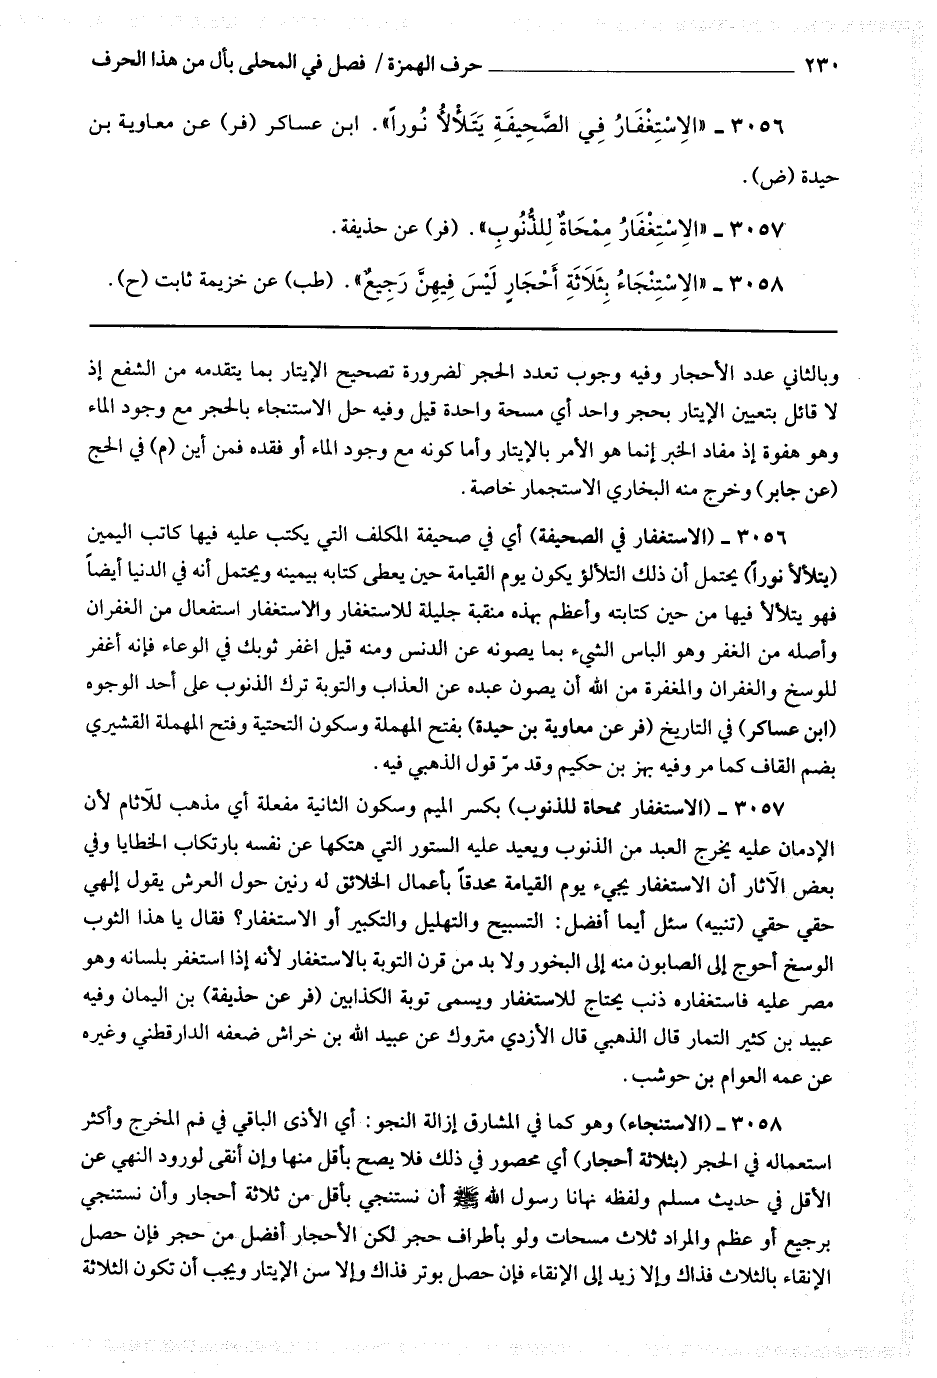 ٢٣٠ ــــــــــــــــــــ حرف الهمزة / فصل في المحلى بأل من هذا الحرف
٣٠٥٦ ـ «الِاسْتِغْفَارُ فِي الصَّحِيفَةِ يَتَلَأْلَأُ نُوراً». ابن عساكر (فر) عن معاوية بن
حيدة (ض).
٣٠٥٧ ـ «الِاسْتِغْفَارُ مِمْحَاةٌ لِلذُّنُوبِ». (فر) عن حذيفة.
٣٠٥٨ ـ «الِاسْتِنْجَاءُ بِثَلَاثَةِ أَحْجَارٍ لَيْسَ فِيهِنَّ رَجِيعٌ». (طب) عن خزيمة ثابت (ح).
وبالثاني عدد الأحجار وفيه وجوب تعدد الحجر لضرورة تصحيح الإيتار بما يتقدمه من الشفع إذ
لا قائل بتعيين الإيتار بحجر واحد أي مسحة واحدة قيل وفيه حل الاستنجاء بالحجر مع وجود الماء
وهو هفوة إذ مفاد الخبر إنما هو الأمر بالإيتار وأما كونه مع وجود الماء أو فقده فمن أين (م) في الحج
(عن جابر) وخرج منه البخاري الاستجمار خاصة.
٣٠٥٦ ـ (الاستغفار في الصحيفة) أي في صحيفة المكلف التي يكتب عليه فيها كاتب اليمين
(يتلألأ نوراً) يحتمل أن ذلك التلألؤ يكون يوم القيامة حين يعطى كتابه بيمينه ويحتمل أنه في الدنيا أيضاً
فهو يتلألأ فيها من حين كتابته وأعظم بهذه منقبة جليلة للاستغفار والاستغفار استفعال من الغفران
وأصله من الغفر وهو الباس الشيء بما يصونه عن الدنس ومنه قيل اغفر ثوبك في الوعاء فإنه أغفر
للوسخ والغفران والمغفرة من الله أن يصون عبده عن العذاب والتوبة ترك الذنوب على أحد الوجوه
(ابن عساكر) في التاريخ (فر عن معاوية بن حيدة) بفتح المهملة وسكون التحتية وفتح المهملة القشيري
بضم القاف كما مر وفيه بهز بن حكيم وقد مرّ قول الذهبي فيه.
٣٠٥٧ ـ (الاستغفار ممحاة للذنوب) بكسر الميم وسكون الثانية مفعلة أي مذهب للآثام لأن
الإدمان عليه يخرج العبد من الذنوب ويعيد عليه الستور التي هتكها عن نفسه بارتكاب الخطايا وفي
بعض الآثار أن الاستغفار يجيء يوم القيامة محدقاً بأعمال الخلائق له رنين حول العرش يقول إلهي
حقي حقي (تنبيه) سئل أيما أفضل: التسبيح والتهليل والتكبير أو الاستغفار؟ فقال يا هذا الثوب
الوسخ أحوج إلى الصابون منه إلى البخور ولا بد من قرن التوبة بالاستغفار لأنه إذا استغفر بلسانه وهو
مصر عليه فاستغفاره ذنب يحتاج للاستغفار ويسمى توبة الكذابين (فر عن حذيفة) بن اليمان وفيه
عبيد بن كثير التمار قال الذهبي قال الأزدي متروك عن عبيد الله بن خراش ضعفه الدارقطني وغيره
عن عمه العوام بن حوشب.
٣٠٥٨ ـ (الاستنجاء) وهو كما في المشارق إزالة النجو: أي الأذى الباقي في فم المخرج وأكثر
استعماله في الحجر (بثلاثة أحجار) أي محصور في ذلك فلا يصح بأقل منها وإن أنقى لورود النهي عن
الأقل في حديث مسلم ولفظه نهانا رسول الله ﷺ أن نستنجي بأقل من ثلاثة أحجار وأن نستنجي
برجيع أو عظم والمراد ثلاث مسحات ولو بأطراف حجر لكن الأحجار أفضل من حجر فإن حصل
الإنقاء بالثلاث فذاك وإلا زيد إلى الإنقاء فإن حصل بوتر فذاك وإلا سن الإيتار ويجب أن تكون الثلاثة